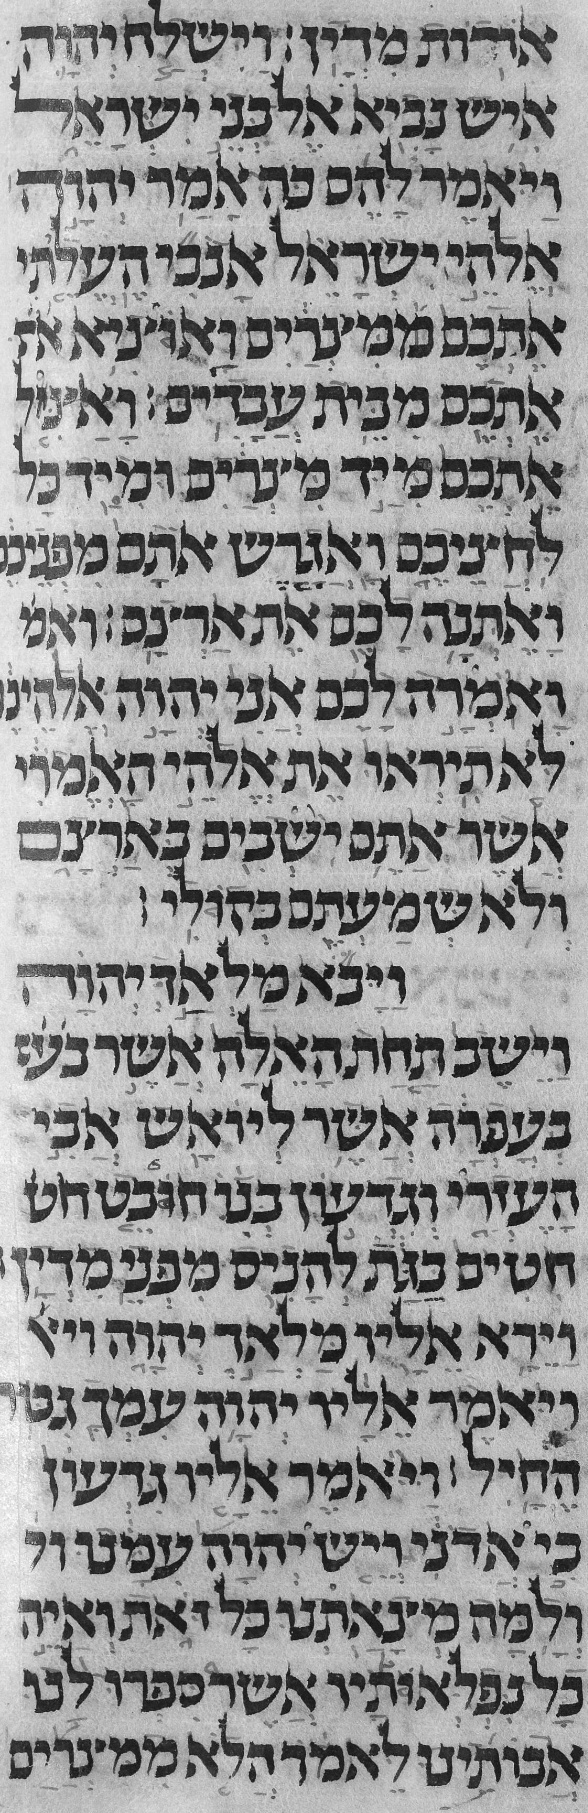 אודות מדין׃ וישלח יהוה
איש נביא אל בני ישראל
ויאמר להם כה אמר יהוה
אלהי ישראל אנכי העליתי
אתכם ממצרים ואוציא את
אתכם מבית עבדים׃ ואציל
אתכם מיד מצרים ומיד כל
לחציכם ואגרש אתם מפניכם
ואתנה לכם את ארצם׃ ואמ
ואמרה לכם אני יהוה אלהיכם
לא תיראו את אלהי האמרי
אשר אתם ישבים בארצם
ולא שמעתם בקולי׃
ויבא מלאך יהוה
וישב תחת האלה אשר בע
בעפרה אשר ליואש אבי
העזרי וגדעון בנו חובט חט
חטים בגת להניס מפני מדין׃
וירא אליו מלאך יהוה ויא
ויאמר אליו יהוה עמך גבור
החיל׃ ויאמר אליו גדעון
בי אדני ויש יהוה עמנו ול
ולמה מצאתנו כל זאת ואיה
כל נפלאותיו אשר ספרו לנו
אבותינו לאמר הלא ממצרים